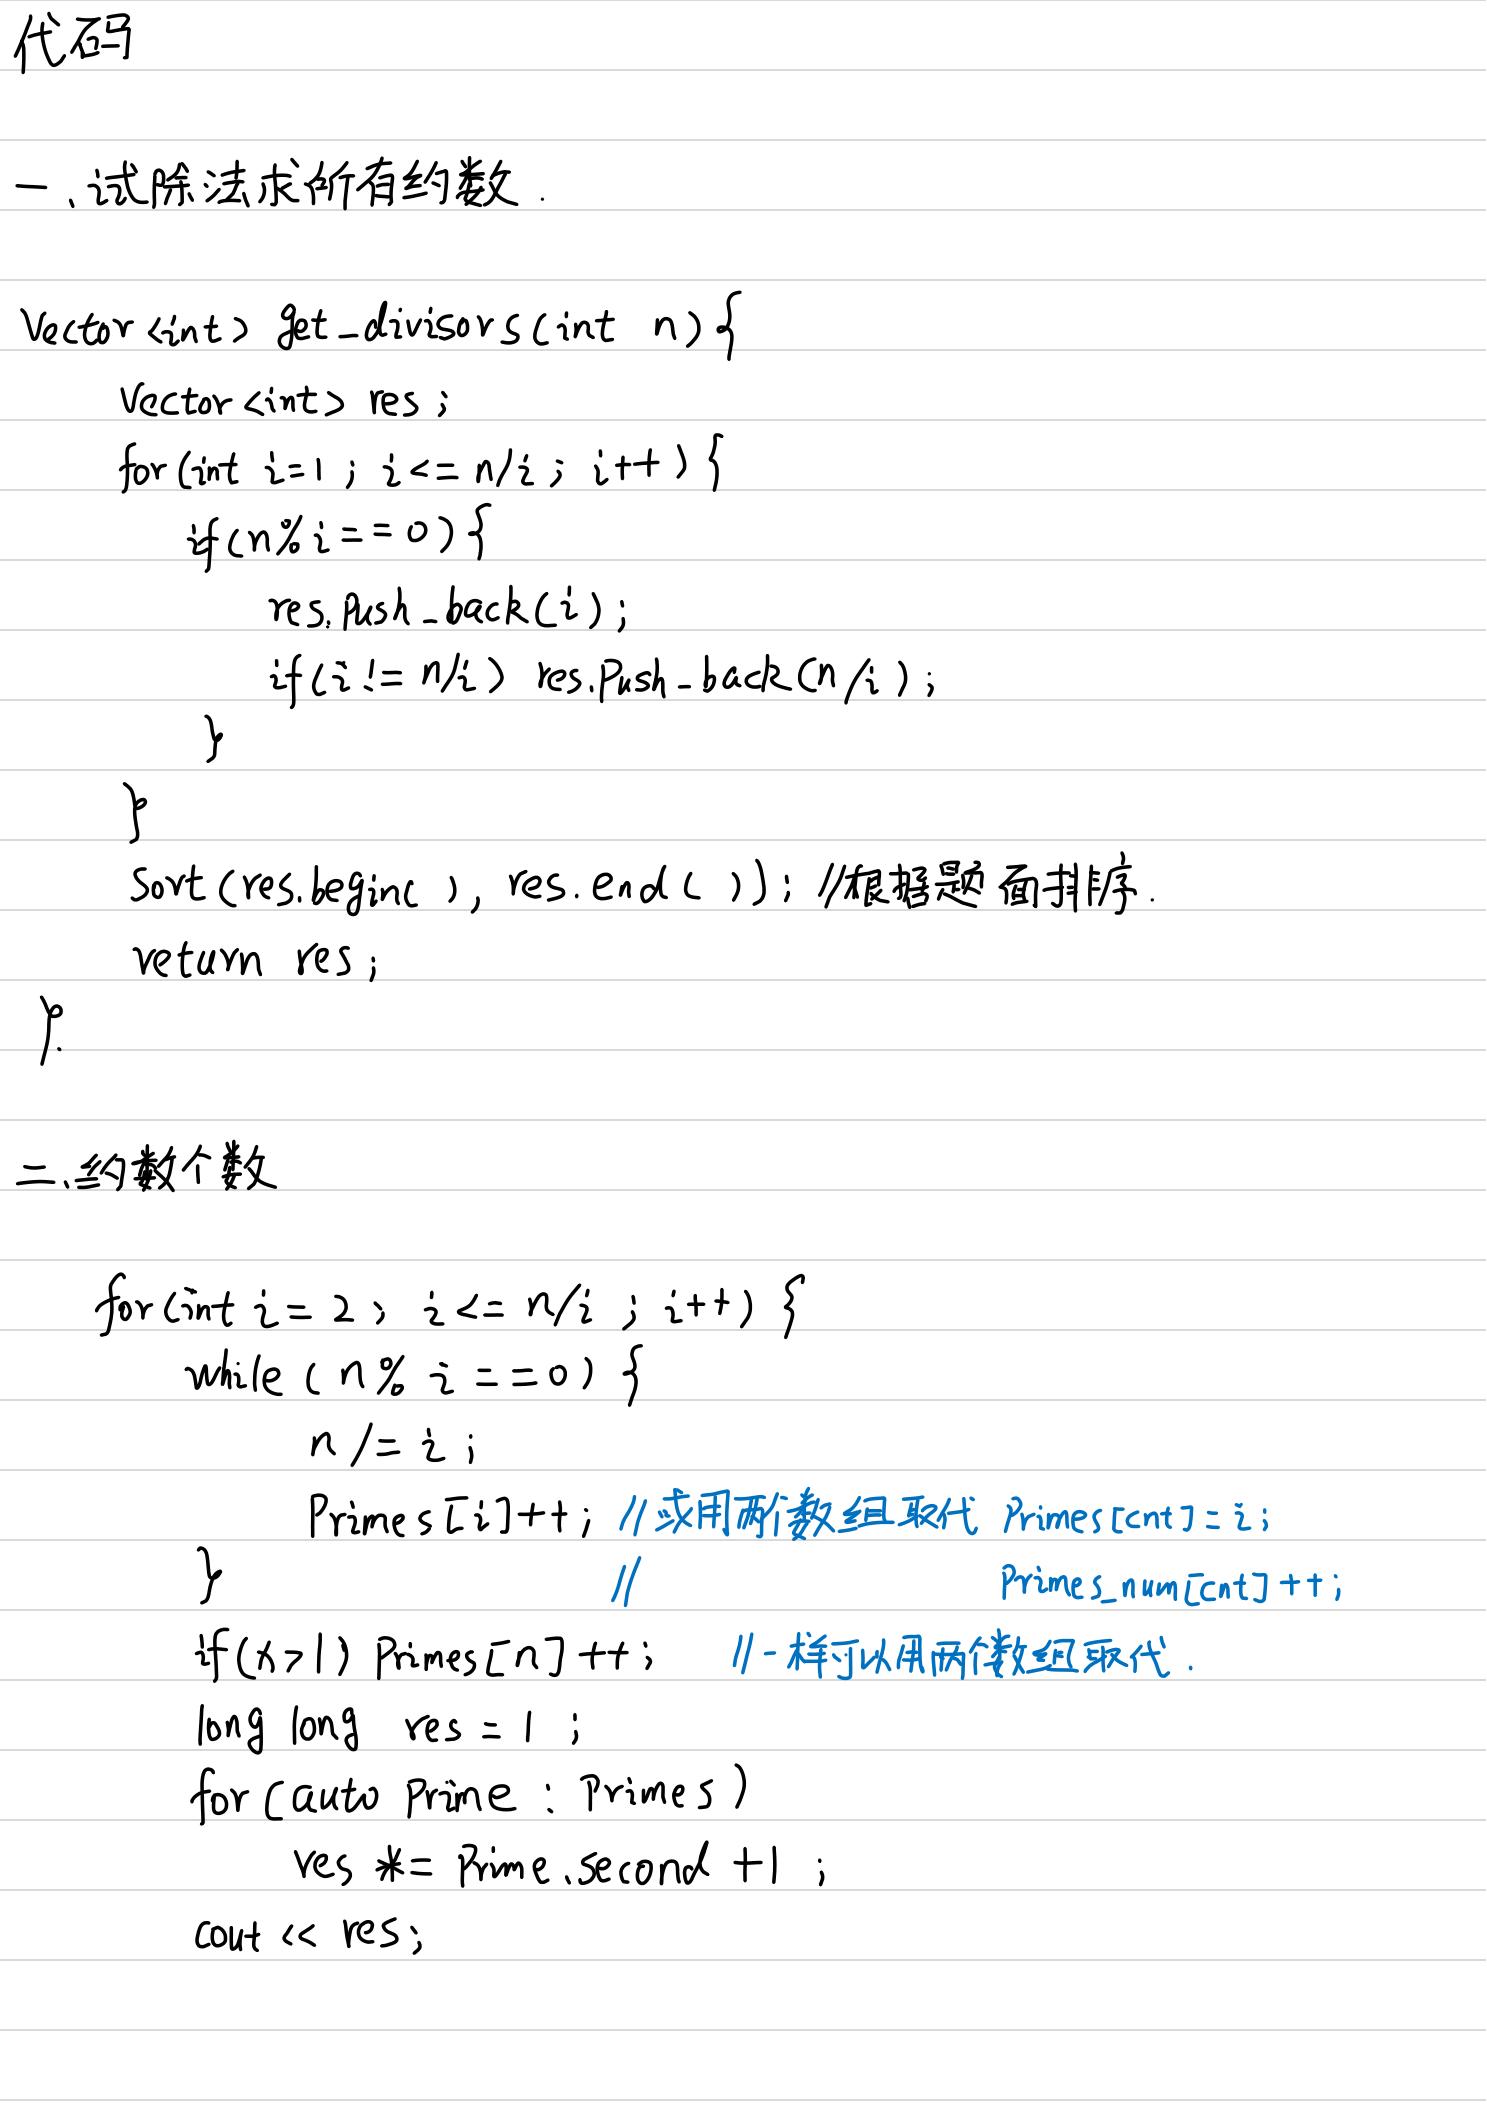 代码
一、试除法求所有约数.
Vector<int> get_divisors(int n){
Vector<int> res;
for(int i=1; i<=n/i; i++){
if(n%i==0){
res.push_back(i);
if(i!=n/i) res.push_back(n/i);
}
}
Sort(res.begin(), res.end()); //根据题面排序.
return res;
}.
二、约数个数
for(int i=2; i<=n/i; i++){
while(n%i==0){
n/=i;
Primes[i]++; //或用两个数组取代 Primes[cnt]=i;
} // Primes_num[cnt]++;
if(x>1) Primes[n]++; //一样可以用两个数组取代.
long long res=1;
for(auto Prime : Primes)
res *= Prime.second+1;
cout << res;